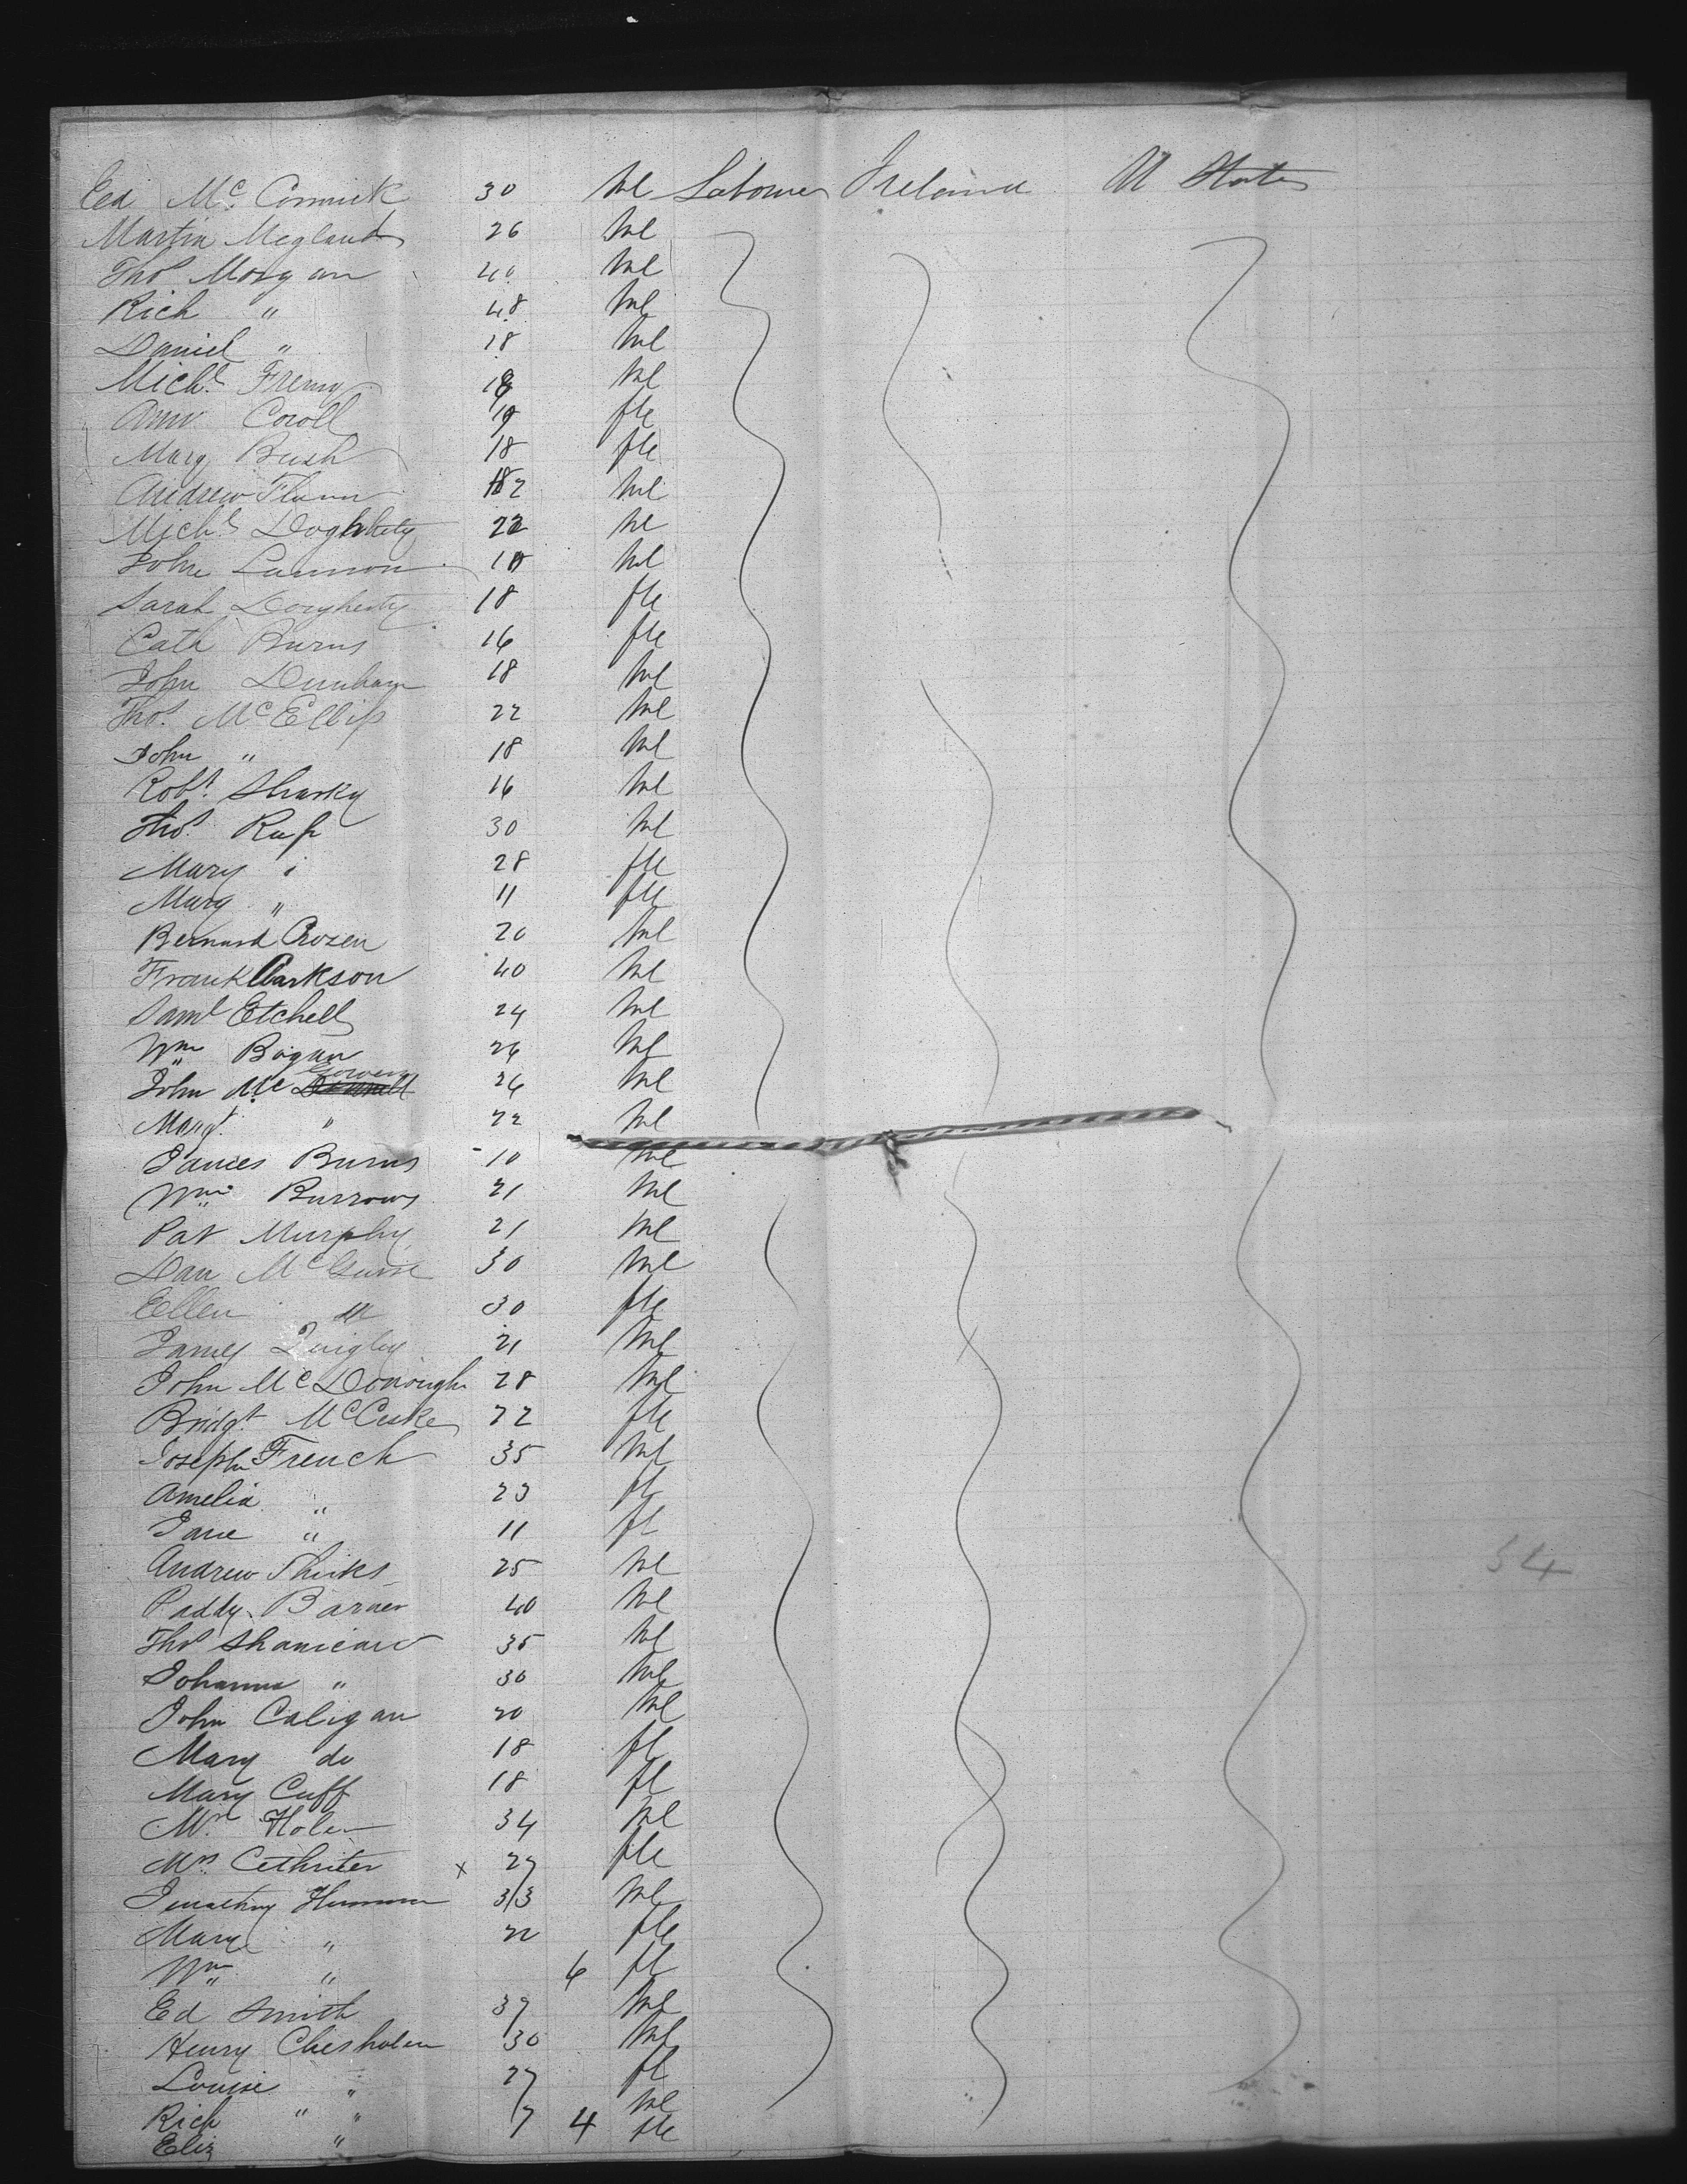 Ed McCormick 30 Ml Labourer Ireland U States
Martin 26 Ml
Thos Morgan 40 Ml
Rich " 48 Ml
Daniel " 18 Ml
Michl 18 Ml
Ann Coroll 19 fle
Mary Bush 18 fle
Andrew Ml
Michl Ml
John Ml
Sarah Dougherty 18 fle
Cath Burns 16 fle
John Dunham 18 Ml
Thos McElliss 22 Ml
John " 18 Ml
Robt Sharky 16 Ml
Thos 30 Ml
Mary 28 fle
Marg " 11 fle
Bernard Crozen 20 Ml
Frank Clarkson 40 Ml
Saml Etchells 24 Ml
Wm Bogan 26 Ml
John Mc Gowen 26 Ml
Margt " 22 Ml
James Burns 10 Ml
Wm Burrows 21 Ml
Pat Murphy 21 Ml
Dan 30 Ml
Ellen 30 fle
James Quigley 21 Ml
John McDonough 28 Ml
Bridgt 22 fle
Joseph French 35 Ml
Amelia " 23 fl
Jane " 11 fl
Andrew 25 Ml
Paddy Barnes 40 Ml
Thos 35 Ml
Johanna " 30 Ml
John Caligan 20 Ml
Mary do 18 fl
Mary Cuff 18 fl
Mr 34 Ml
Mrs x 27 fle
33 Ml
Mary " 22 fle
Wm " 6 fl
Ed Smith 37 Ml
Henry Chesholm 30 Ml
Louise " 27 fl
Rich " " 7 Ml
Eliz " 4 fle
54